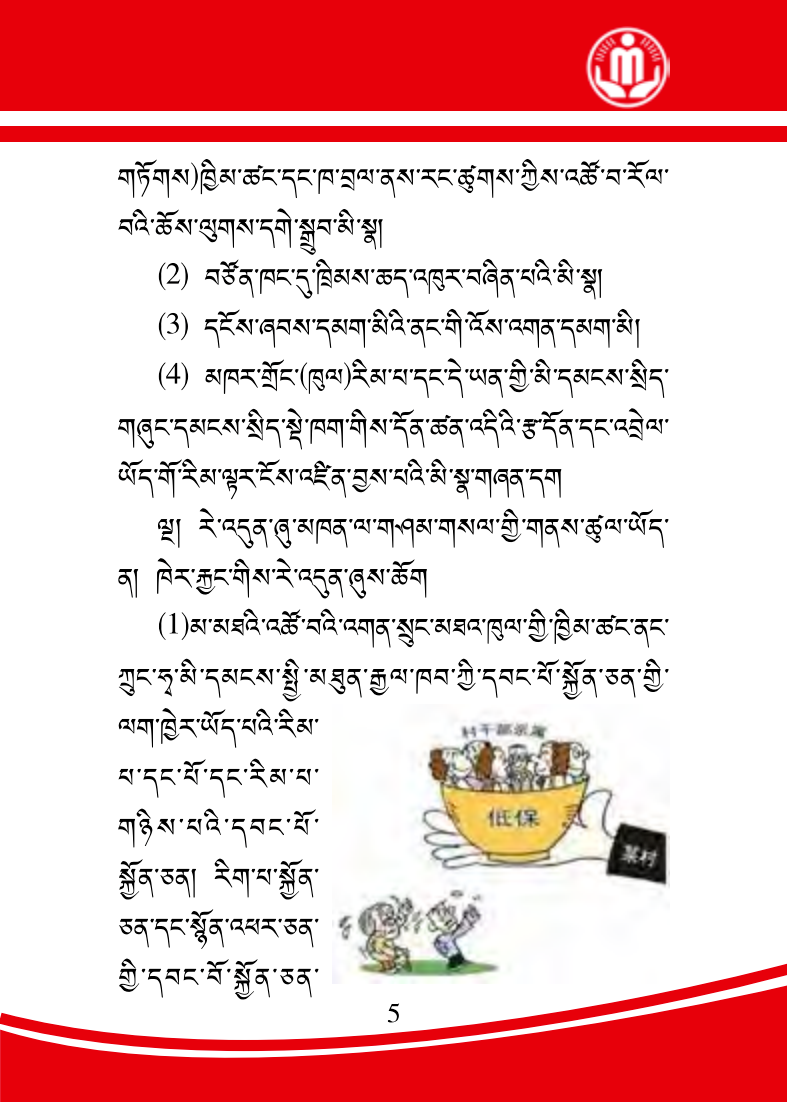 གཏོགས)ཁྱིམ་ཚང་དང་ཁ་བྲལ་ནས་རང་ཚུགས་ཀྱིས་འཚོ་བ་རོལ་
བའི་ཆོས་ལུགས་དགེ་སྒྲུབ་མི་སྣ།
(2) བཙོན་ཁང་དུ་ཁྲིམས་ཆད་འཁུར་བཞིན་པའི་མི་སྣ།
(3) དངོས་ཞབས་དམག་མིའི་ནང་གི་འོས་འགན་དམག་མི།
(4) མཁར་གྲོང་(ཁུལ)རིམ་པ་དང་དེ་ཡན་གྱི་མི་དམངས་སྲིད་
གཞུང་དམངས་སྲིད་སྡེ་ཁག་གིས་དོན་ཚན་འདིའི་རྩ་དོན་དང་འབྲེལ་
ཡོད་གོ་རིམ་ལྟར་ངོས་འཛིན་བྱས་པའི་མི་སྣ་གཞན་དག
ལྔ། རེ་འདུན་ཞུ་མཁན་ལ་གཤམ་གསལ་གྱི་གནས་ཚུལ་ཡོད་
ན། ཁེར་རྐྱང་གིས་རེ་འདུན་ཞུས་ཆོག
(1)མ་མཐའི་འཚོ་བའི་འགན་སྲུང་མཐའ་ཁུལ་གྱི་ཁྱིམ་ཚང་ནང་
ཀྲུང་ཧྭ་མི་དམངས་སྤྱི་མཐུན་རྒྱལ་ཁབ་ཀྱི་དབང་པོ་སྐྱོན་ཅན་གྱི་
ལག་ཁྱེར་ཡོད་པའི་རིམ་
པ་དང་པོ་དང་རིམ་པ་
གཉིས་པའི་དབང་པོ་
སྐྱོན་ཅན། རིག་པ་སྐྱོན་
ཅན་དང་སྙོན་འཕར་ཅན་
གྱི་དབང་བོ་སྐྱོན་ཅན་
村干部亲属
低保
某村
5